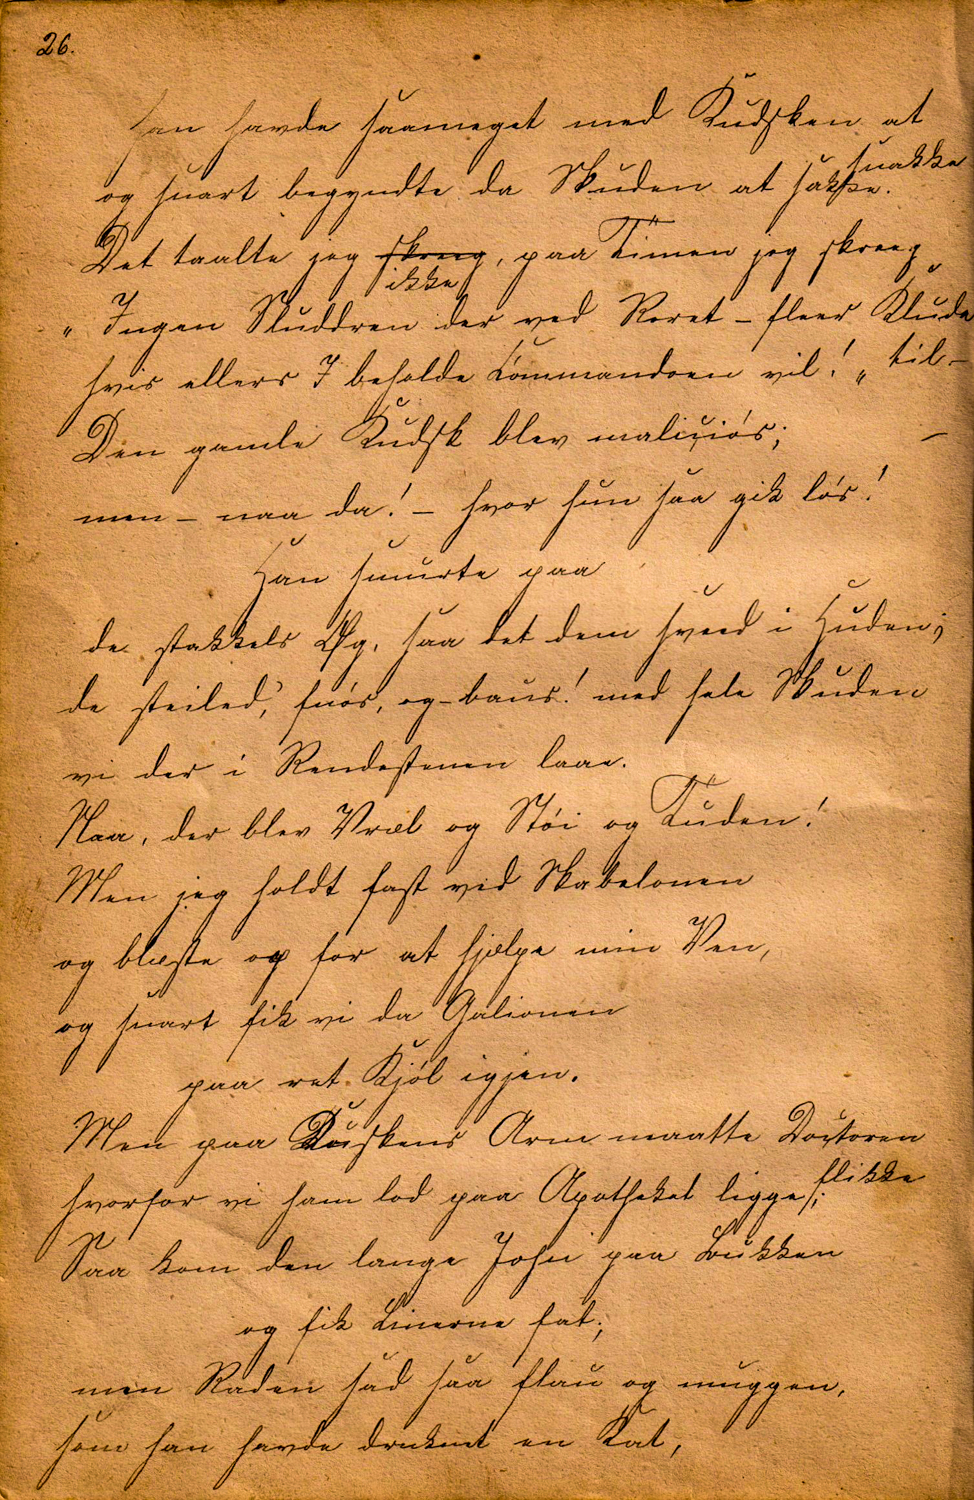 26.
han havde saameget med Kudsken at snakke
og snart begyndte da Skuden at sakke.
Det taalte jeg skreeg ikke, paa Timen jeg skreeg
„Ingen Sluddren der ved Roret – fleer Klude til –
hvis ellers I beholde Commandoen vil!„
Den gamle Kudsk blev maliçiós; –
men – naa da! – hvor hun saa gik lós!
Han smurte paa
de stakkels Øg, saa det dem sveed i Huden;
de steiled', fnós, og – baus! med hele Skuden
vi der i Rendestenen laae.
Naa, der blev Vræl og Stói og Tuden!
Men jeg holdt fast ved Skabelonen
og blæste op for at hjælpe min Ven,
og snart fik vi da Galionen
paa ret Kjól igjen.
Men paa Kuskens Arm maatte Doctoren flikke
hvorfor vi ham lod paa Apotheket ligge;
Saa kom den lange John paa Bukken
og fik Linerne fat;
men Raden sad saa flau og muggen,
som han havde druknet en Kat,